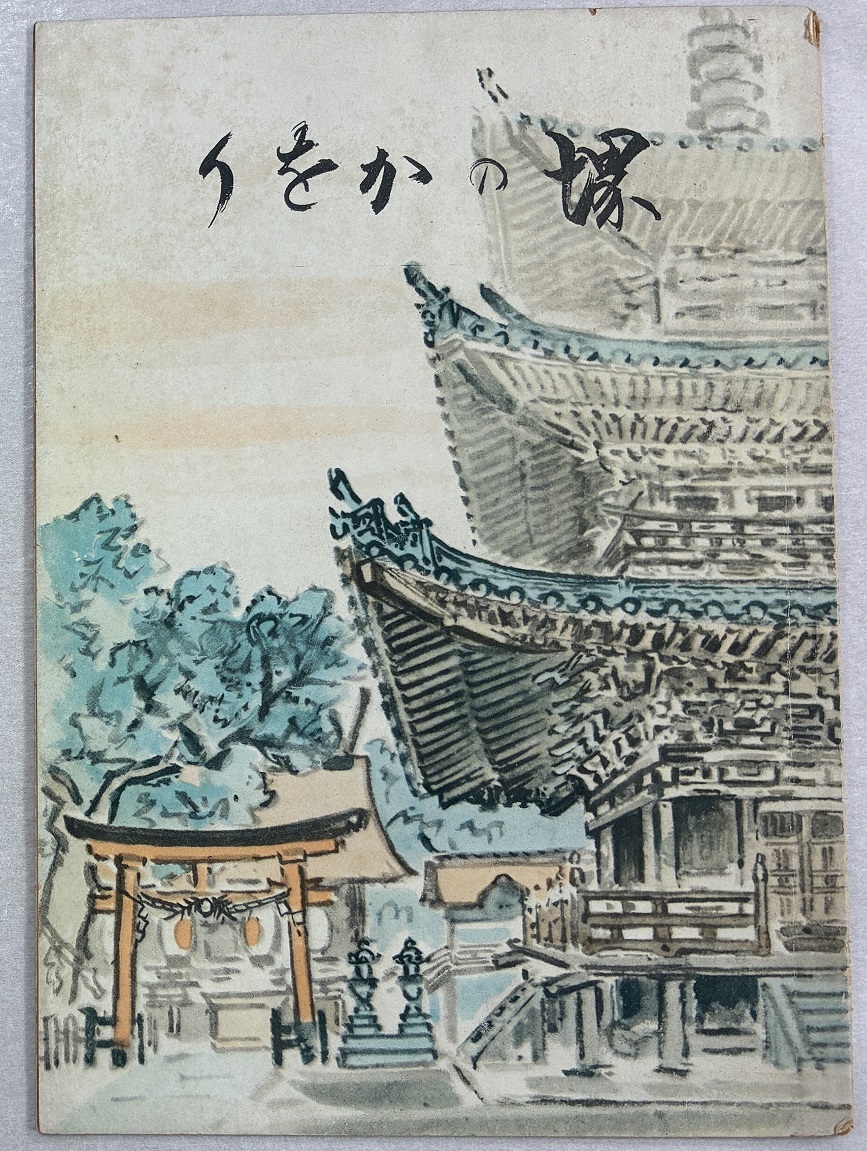 堺のかをり